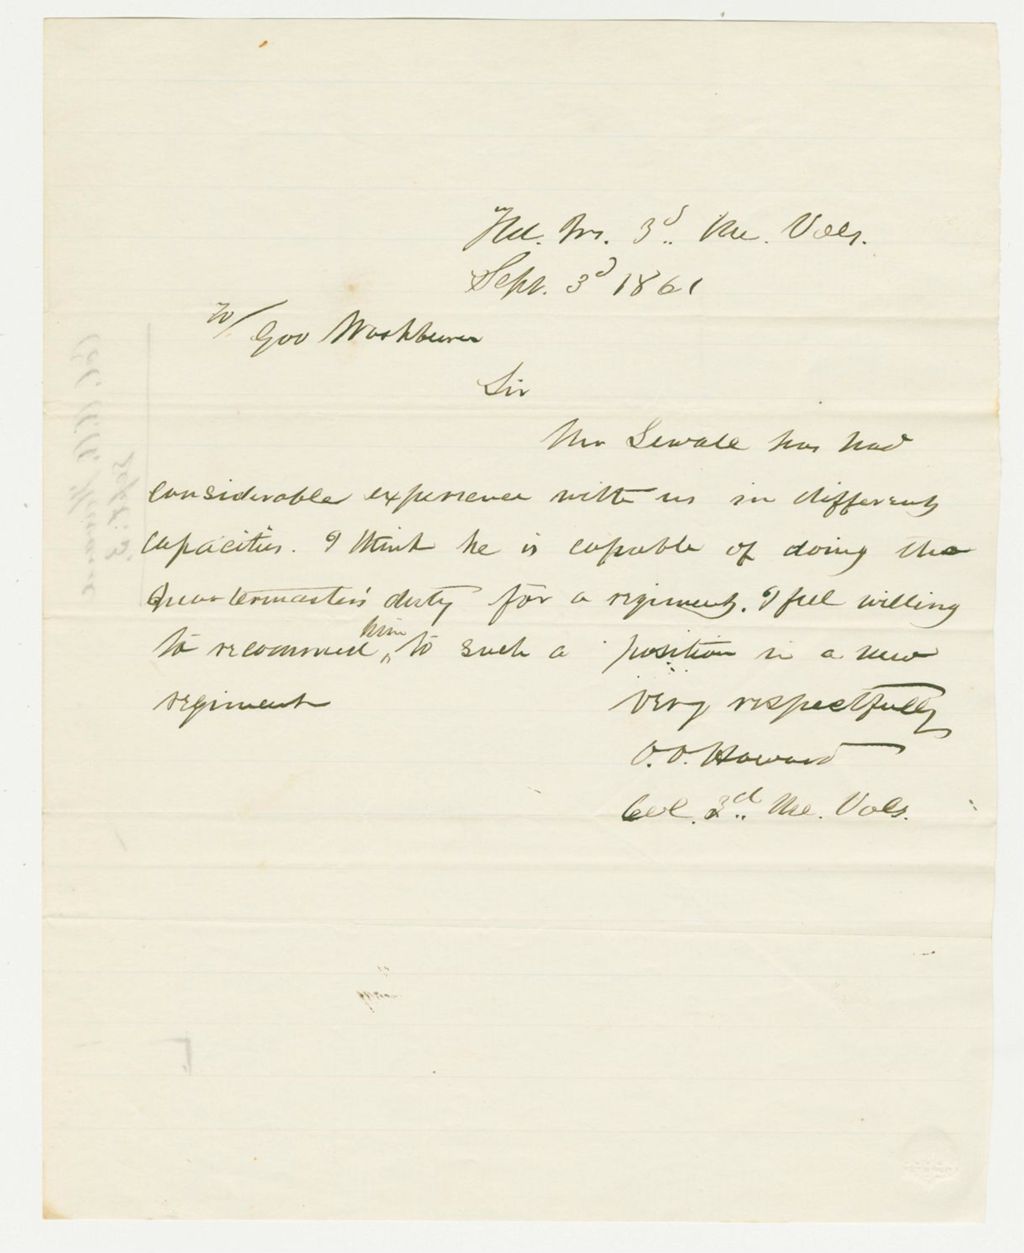 Hd. Qrs. 3d.. Me. Vols.
Sept. 3d 1861
To/ Gov Washburn
Sir
Mr Sewall has had
considerable experience with us in different
capacities. I think he is capable of doing the
Quartermaster's duty for a regiment. I feel willing
to recommend him to such a position in a new
regiment
Very respectfully
O. O. Howard
Col. 3d.. Me. Vols.